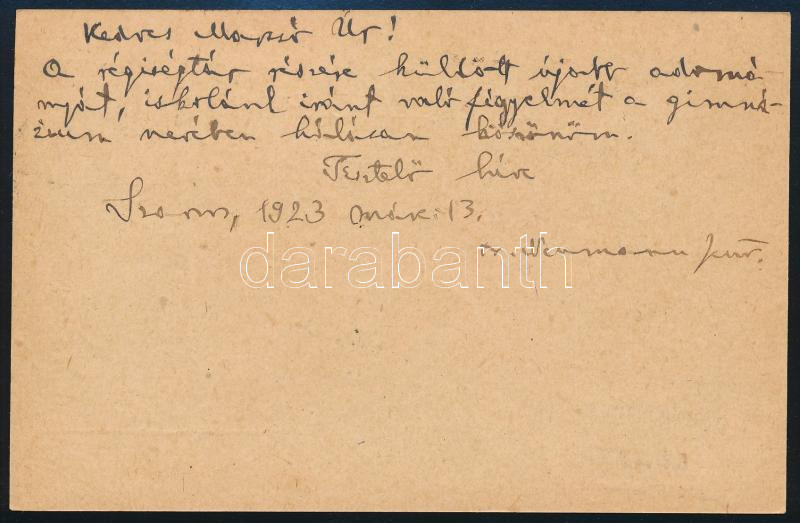 Kedves Marzsó Úr!
A régiségtár részére küldött újabb adomá-
nyát, iskolánk iránt való figyelmét a gimná-
zium nevében hálásan köszönöm.
Tisztelő híve
1923 márc. 13.
darabanth
dr. Neumann Jenő.